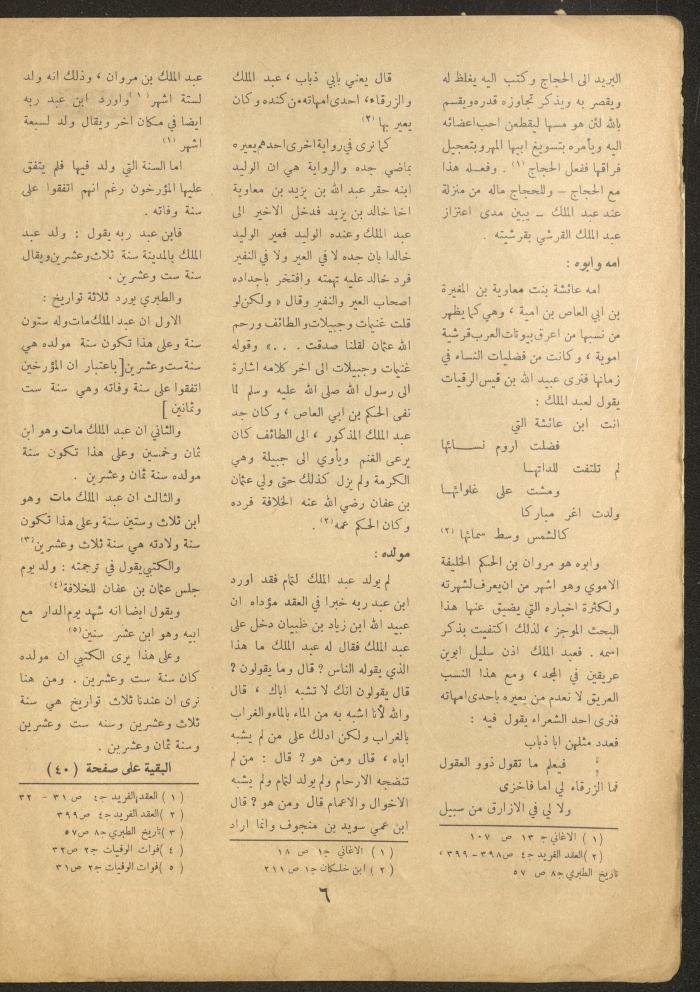 البريد الى الحجاج وكتب اليه يغلظ له
ويقصر به ويذكر تجاوزه قدره ويقسم
بالله لئن هو مسها ليقطعن احب اعضائه
اليه ويأمره بتسويغ ابيها المهر وبتعجيل
فراقها ففعل الحجاج (١) . وفعله هذا
مع الحجاج – وللحجاج ماله من منزلة
عند عبد الملك – يبين مدى اعتزاز
عبد الملك القرشي بقرشيته .
امه وابوه :
امه عائشة بنت معاوية بن المغيرة
بن ابي العاص بن امية ، وهي كما يظهر
من نسبها من اعرق بيوتات العرب قرشية
اموية ، وكانت من فضليات النساء في
زمانها فنرى عبيد الله بن قيس الرقيات
يقول لعبد الملك :
انت ابن عائشة التي
فضلت اروم نسائها
لم تلتفت للداتها
ومشت على غلوائها
ولدت اغر مباركا
كالشمس وسط سمائها (٢)
وابوه هو مروان بن الحكم الخليفة
الاموي وهو اشهر من ان يعرف لشهرته
ولكثرة اخباره التي يضيق عنها هذا
البحث الموجز ، لذلك اكتفيت بذكر
اسمه . فعبد الملك اذن سليل ابوين
عريقين في المجد ، ومع هذا النسب
العريق لا نعدم من يعيره باحدى امهاته
فنرى احد الشعراء يقول فيه :
فعدد مثلهن ابا ذباب
فيعلم ما تقول ذوو العقول
فما الزرقاء لي اما فاخزى
ولا لي في الازارق من سبيل
(١) الاغاني ج ١٣ ص ١٠٧
(٢) العقد الفريد ج٤ ص ٣٩٨ – ٣٩٩ ،
تاريخ الطبري ج٨ ص ٥٧
قال يعني بابي ذباب ، عبد الملك
والزرقاء ، احدى امهاته من كنده وكان
يعير بها (٢)
كما نرى في رواية اخرى احدهم يعيره
بماضي جده والرواية هي ان الوليد
ابنه حقر عبد الله بن يزيد بن معاوية
اخا خالد بن يزيد فدخل الاخير الى
عبد الملك وعنده الوليد فعير الوليد
خالدا بان جده لا في العير ولا في النفير
فرد خالد عليه تهمته وافتخر باجداده
اصحاب العير والنفير وقال « ولكن لو
قلت غنيمات وجبيلات والطائف ورحم
الله عثمان لقلنا صدقت . . » وقوله
غنيمات وجبيلات الى اخر كلامه اشارة
الى رسول الله صلى الله عليه وسلم لما
نفى الحكم بن ابي العاص ، وكان جد
عبد الملك المذكور ، الى الطائف كان
يرعى الغنم ويأوي الى جبيلة وهي
الكرمة ولم يزل كذلك حتى ولي عثمان
بن عفان رضي الله عنه الخلافة فرده
وكان الحكم عمه (٢) .
مولده :
لم يولد عبد الملك لتمام فقد اورد
ابن عبد ربه خبرا في العقد مؤداه ان
عبيد الله ابن زياد بن ظبيان دخل على
عبد الملك فقال له عبد الملك ما هذا
الذي يقوله الناس ? قال وما يقولون ?
قال يقولون انك لا تشبه اباك ، قال
والله لأنا اشبه به من الماء بالماء والغراب
بالغراب ولكن ادلك على من لم يشبه
اباه ، قال ومن هو ? قال : من لم
تنضجه الارحام ولم يولد لتمام ولم يشبه
الاخوال والاعمام قال ومن هو ? قال
ابن عمي سويد بن منجوف وانما اراد
(١) الاغاني ج١ ص ١٨
(٢) ابن خلكان ج١ ص ٢١١
عبد الملك بن مروان ، وذلك انه ولد
لستة اشهر (١) واورد ابن عبد ربه
ايضا في مكان اخر ويقال ولد لسبعة
اشهر (١)
اما السنة التي ولد فيها فلم يتفق
عليها المؤرخون رغم انهم اتفقوا على
سنة وفاته .
فابن عبد ربه يقول : ولد عبد
الملك بالمدينة سنة ثلاث وعشرين ويقال
سنة ست وعشرين .
والطبري يورد ثلاثة تواريخ :
الاول ان عبد الملك مات وله ستون
سنة وعلى هذا تكون سنة مولده هي
سنة ست وعشرين [ باعتبار ان المؤرخين
اتفقوا على سنة وفاته وهي سنة ست
وثمانين ]
والثاني ان عبد الملك مات وهو ابن
ثمان وخمسين وعلى هذا تكون سنة
مولده سنة ثمان وعشرين .
والثالث ان عبد الملك مات وهو
ابن ثلاث وستين سنة وعلى هذا تكون
سنة ولادته هي سنة ثلاث وعشرين (٣)
والكتبي يقول في ترجمته : ولد يوم
جلس عثمان بن عفان للخلافة (٤)
ويقول ايضا انه شهد يوم الدار مع
ابيه وهو ابن عشر سنين (٥)
وعلى هذا يرى الكتبي ان مولده
كان سنة ست وعشرين . ومن هنا
نرى ان عندنا ثلاث تواريخ هي سنة
ثلاث وعشرين وسنه ست وعشرين
وسنة ثمان وعشرين .
البقية على صفحة (٤٠)
(١) العقد الفريد ج٤ ص ٣١ – ٣٢
(٢) العقد الفريد ج٤ ص ٣٩٩
(٣) تاريخ الطبري ج٨ ص ٥٧
(٤) فوات الوفيات ج٢ ص ٣٢
(٥) فوات الوفيات ج٢ ص ٣١
٦